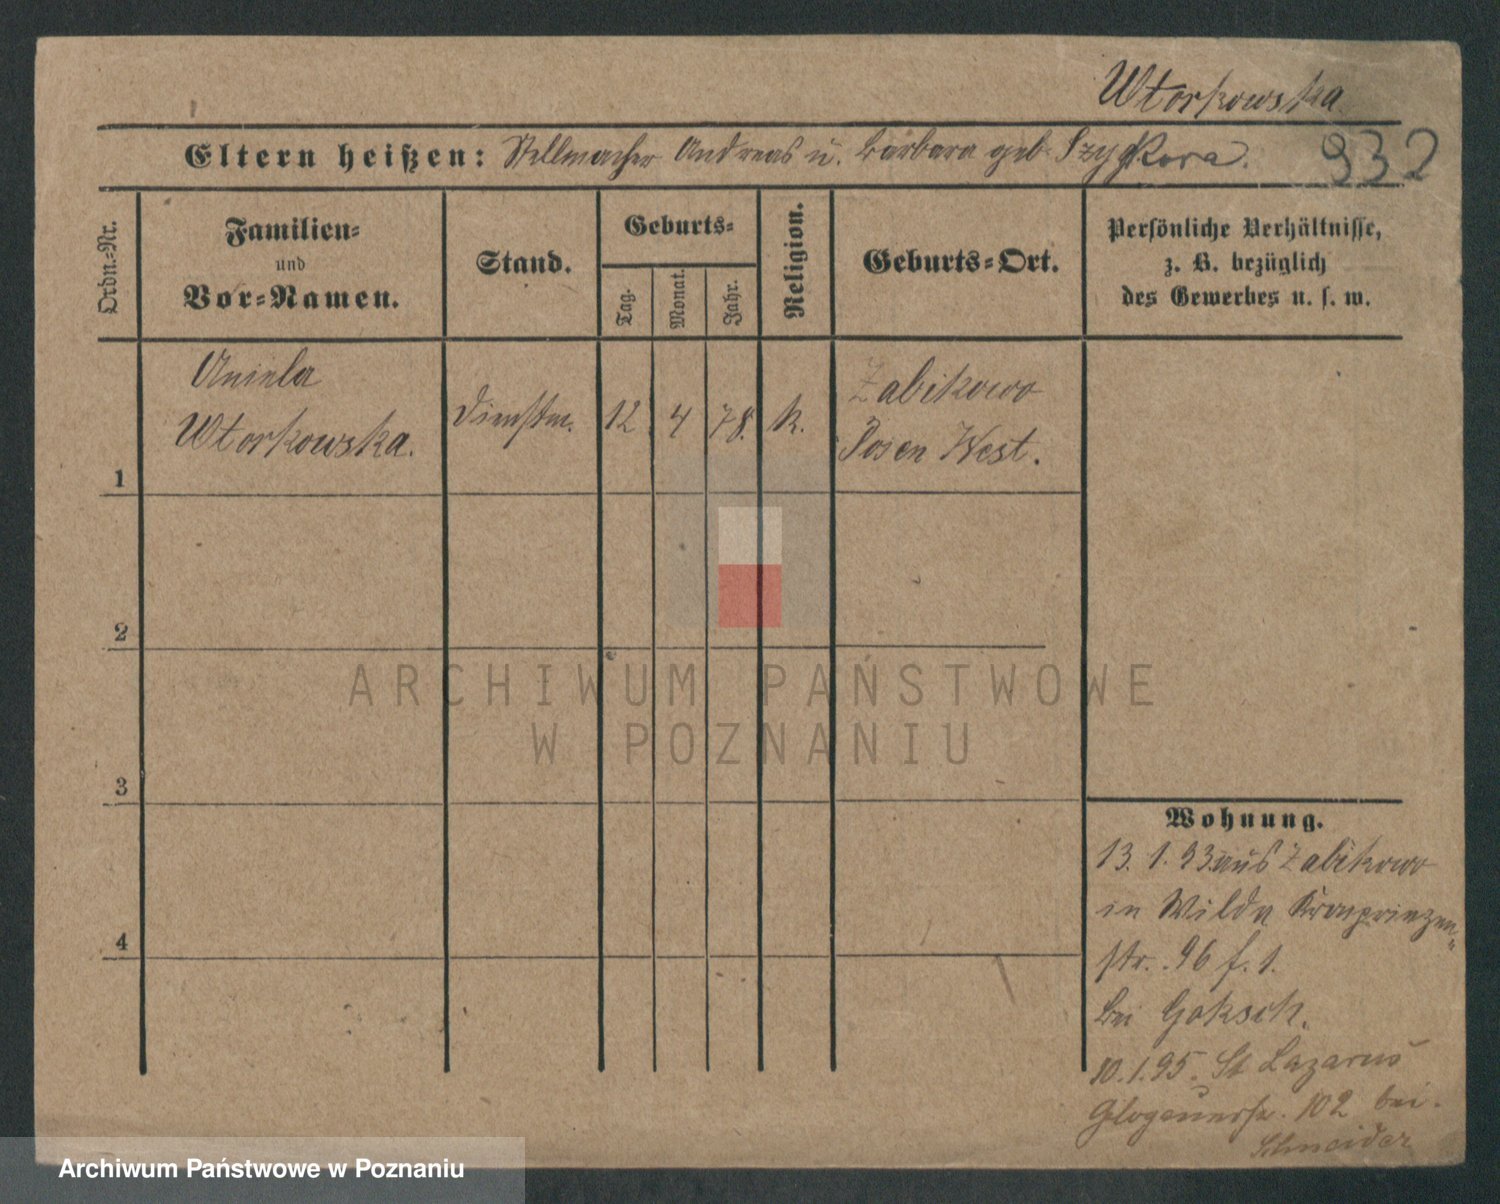 Wtorkowska
Eltern heißen: Stellmacher Andreas u. Barbara geb. Szyykora.
932
Ordn.-Nr.
Familien-
und
Vor-Namen.
Stand.
Geburts-
Tag.
Monat.
Jahr.
Religion.
Geburts-Ort.
Persönliche Verhältnisse,
z. B. bezüglich
des Gewerbes u. s. w.
Aniela
Wtorkowska.
Dienstm.
12
4
78.
k.
Zabikowo
Posen West.
1
2
3
4
Wohnung.
13. 1. 93. aus Zabikowo
in Wilda Kronprinzen-
str. 96 f. 1.
bei Goksch.
10. 1. 95. St Lazarus
Glogauerstr. 102 bei
Schneider
ARCHIWUM PAŃSTWOWE
W POZNANIU
Archiwum Państwowe w Poznaniu